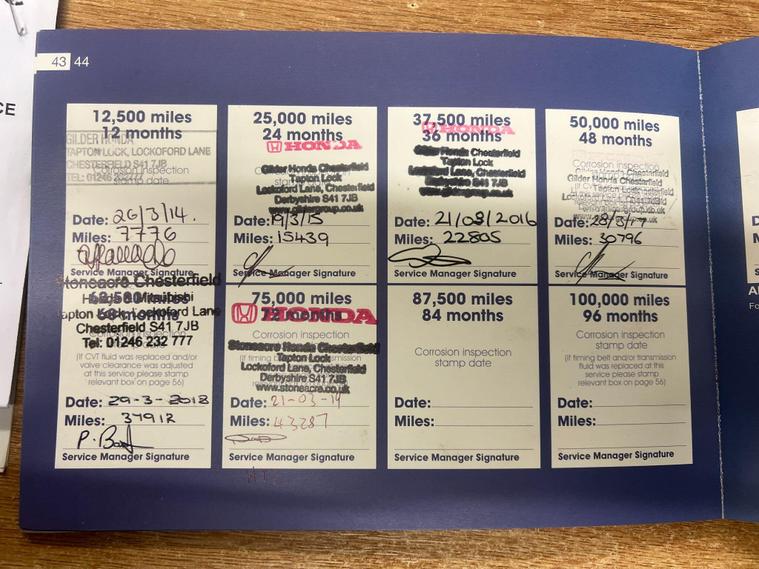 43 44
CE
12,500 miles
12 months
GILDER HONDA
TAPTON LOCK, LOCKOFORD LANE
CHESTERFIELD S41 7JB
TEL: 01246 232777
Corrosion inspection
stamp date
Date: 26/3/14.
Miles: 7776
Service Manager Signature
25,000 miles
24 months
HONDA
Gilder Honda Chesterfield
Tapton Lock
Lockoford Lane, Chesterfield
Derbyshire S41 7JB
www.gildergroup.co.uk
Date: 19/3/15
Miles: 15439
Service Manager Signature
37,500 miles
36 months
HONDA
Gilder Honda Chesterfield
Tapton Lock
Lockoford Lane, Chesterfield
Derbyshire S41 7JB
Date: 21/03/2016
Miles: 22805
Service Manager Signature
50,000 miles
48 months
Corrosion inspection
Gilder Honda Chesterfield
Date: 28/3/17
Miles: 30796
Service Manager Signature
Stoneacre Chesterfield
62,500 miles
Honda Mitsubishi
Tapton Lock, Lockoford Lane
Chesterfield S41 7JB
Tel: 01246 232 777
(If CVT
fluid was replaced and/or
valve clearance was adjusted
at this service please stamp
relevant box on page 56)
Date: 29-3-2018
Miles: 37912
P.
Service Manager Signature
75,000 miles
72 months
HONDA
Corrosion inspection
Stoneacre Honda Chesterfield
Tapton Lock
Lockoford Lane, Chesterfield
Derbyshire S41 7JB
www.stoneacre.co.uk
Date: 21-03-19
Miles: 43287
Service Manager Signature
87,500 miles
84 months
Corrosion inspection
stamp date
Date:
Miles:
Service Manager Signature
100,000 miles
96 months
Corrosion inspection
stamp date
(If timing belt and/or transmission
fluid was replaced at this
service please stamp
relevant box on page 56)
Date:
Miles:
Service Manager Signature